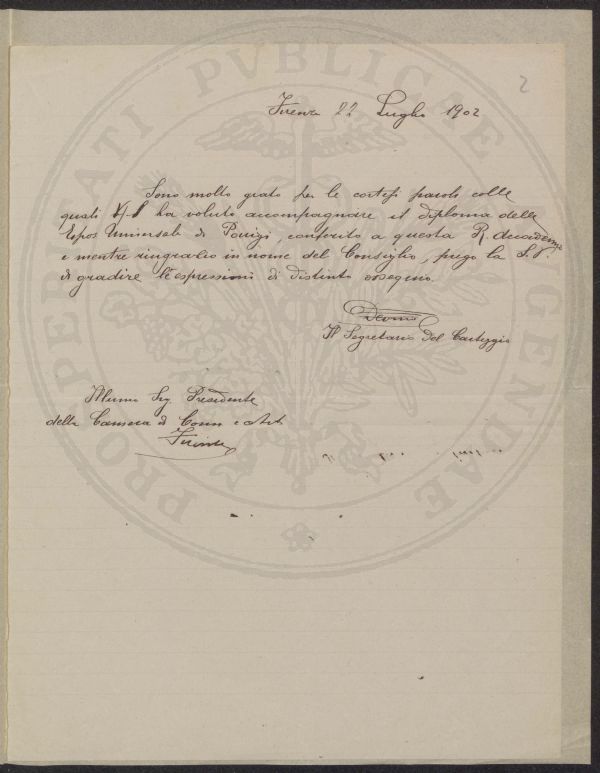 2
Firenze 22 Luglio 1902
Sono molto grato per le cortesi parole colle
quali V. S. ha voluto accompagnare il diploma della
Espos. Universale di Parigi, conferito a questa R. Accademia
e mentre ringrazio in nome del Consiglio, prego la S. V.
di gradire le espressioni di distinto ossequio.
Il Segretario del Carteggio
Illmo Sig. Presidente
della Camera di Comm e Arti
Firenze
PROSPERITATI PVBLICAE AVGENDAE